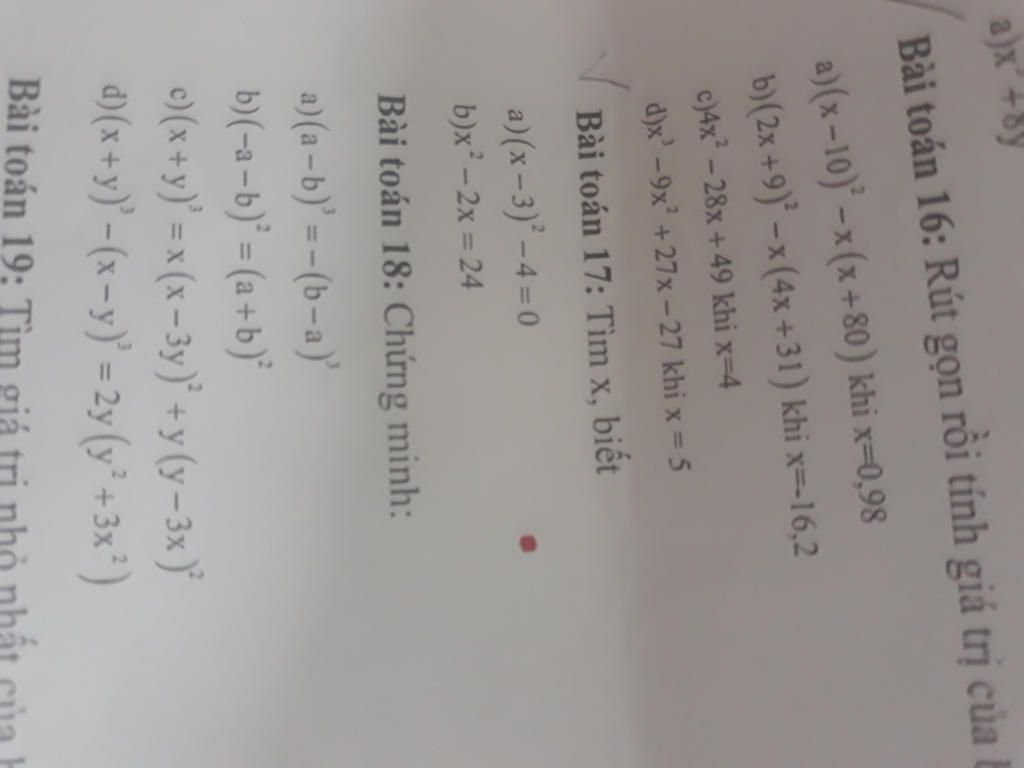 a)x³ +8y
Bài toán 16: Rút gọn rồi tính giá trị của
a)(x−10)² −x(x+80) khi x=0,98
b)(2x+9)² −x(4x+31) khi x=-16,2
c)4x² −28x+49 khi x=4
d)x³ −9x² +27x−27 khi x = 5
Bài toán 17: Tìm x, biết
a)(x−3)² −4=0
b)x² −2x=24
Bài toán 18: Chứng minh:
a)(a−b)³ =−(b−a)³
b)(−a−b)² =(a+b)²
c)(x+y)³ =x(x−3y)² +y(y−3x)²
d)(x+y)³ −(x−y)³ =2y(y² +3x²)
Bài toán 19: Tìm giá trị nhỏ nhất của